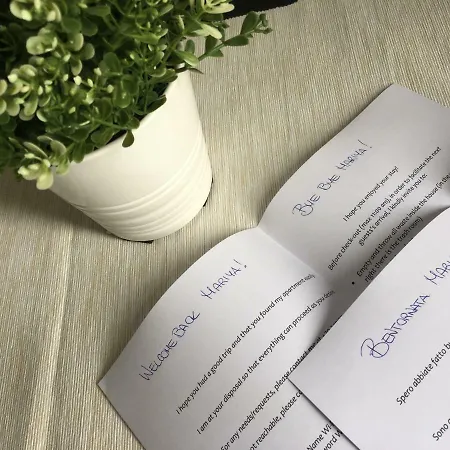 WELCOME BACK MARIYA!
I hope you had a good trip and that you found my apartment easily.
I am at your disposal so that everything can proceed as you desire.
For any needs/requests, please contact
not reachable, please
Name
BYE BYE MARIYA!
I hope you enjoyed your stay!
Before check-out (max 11:00 am), in order to facilitate the next
guests's arrival, I kindly invite you to:
• Empty and throw all waste inside the house (in the
right there is the trash room)
BENTORNATA
Spero abbiate fatto
Sono